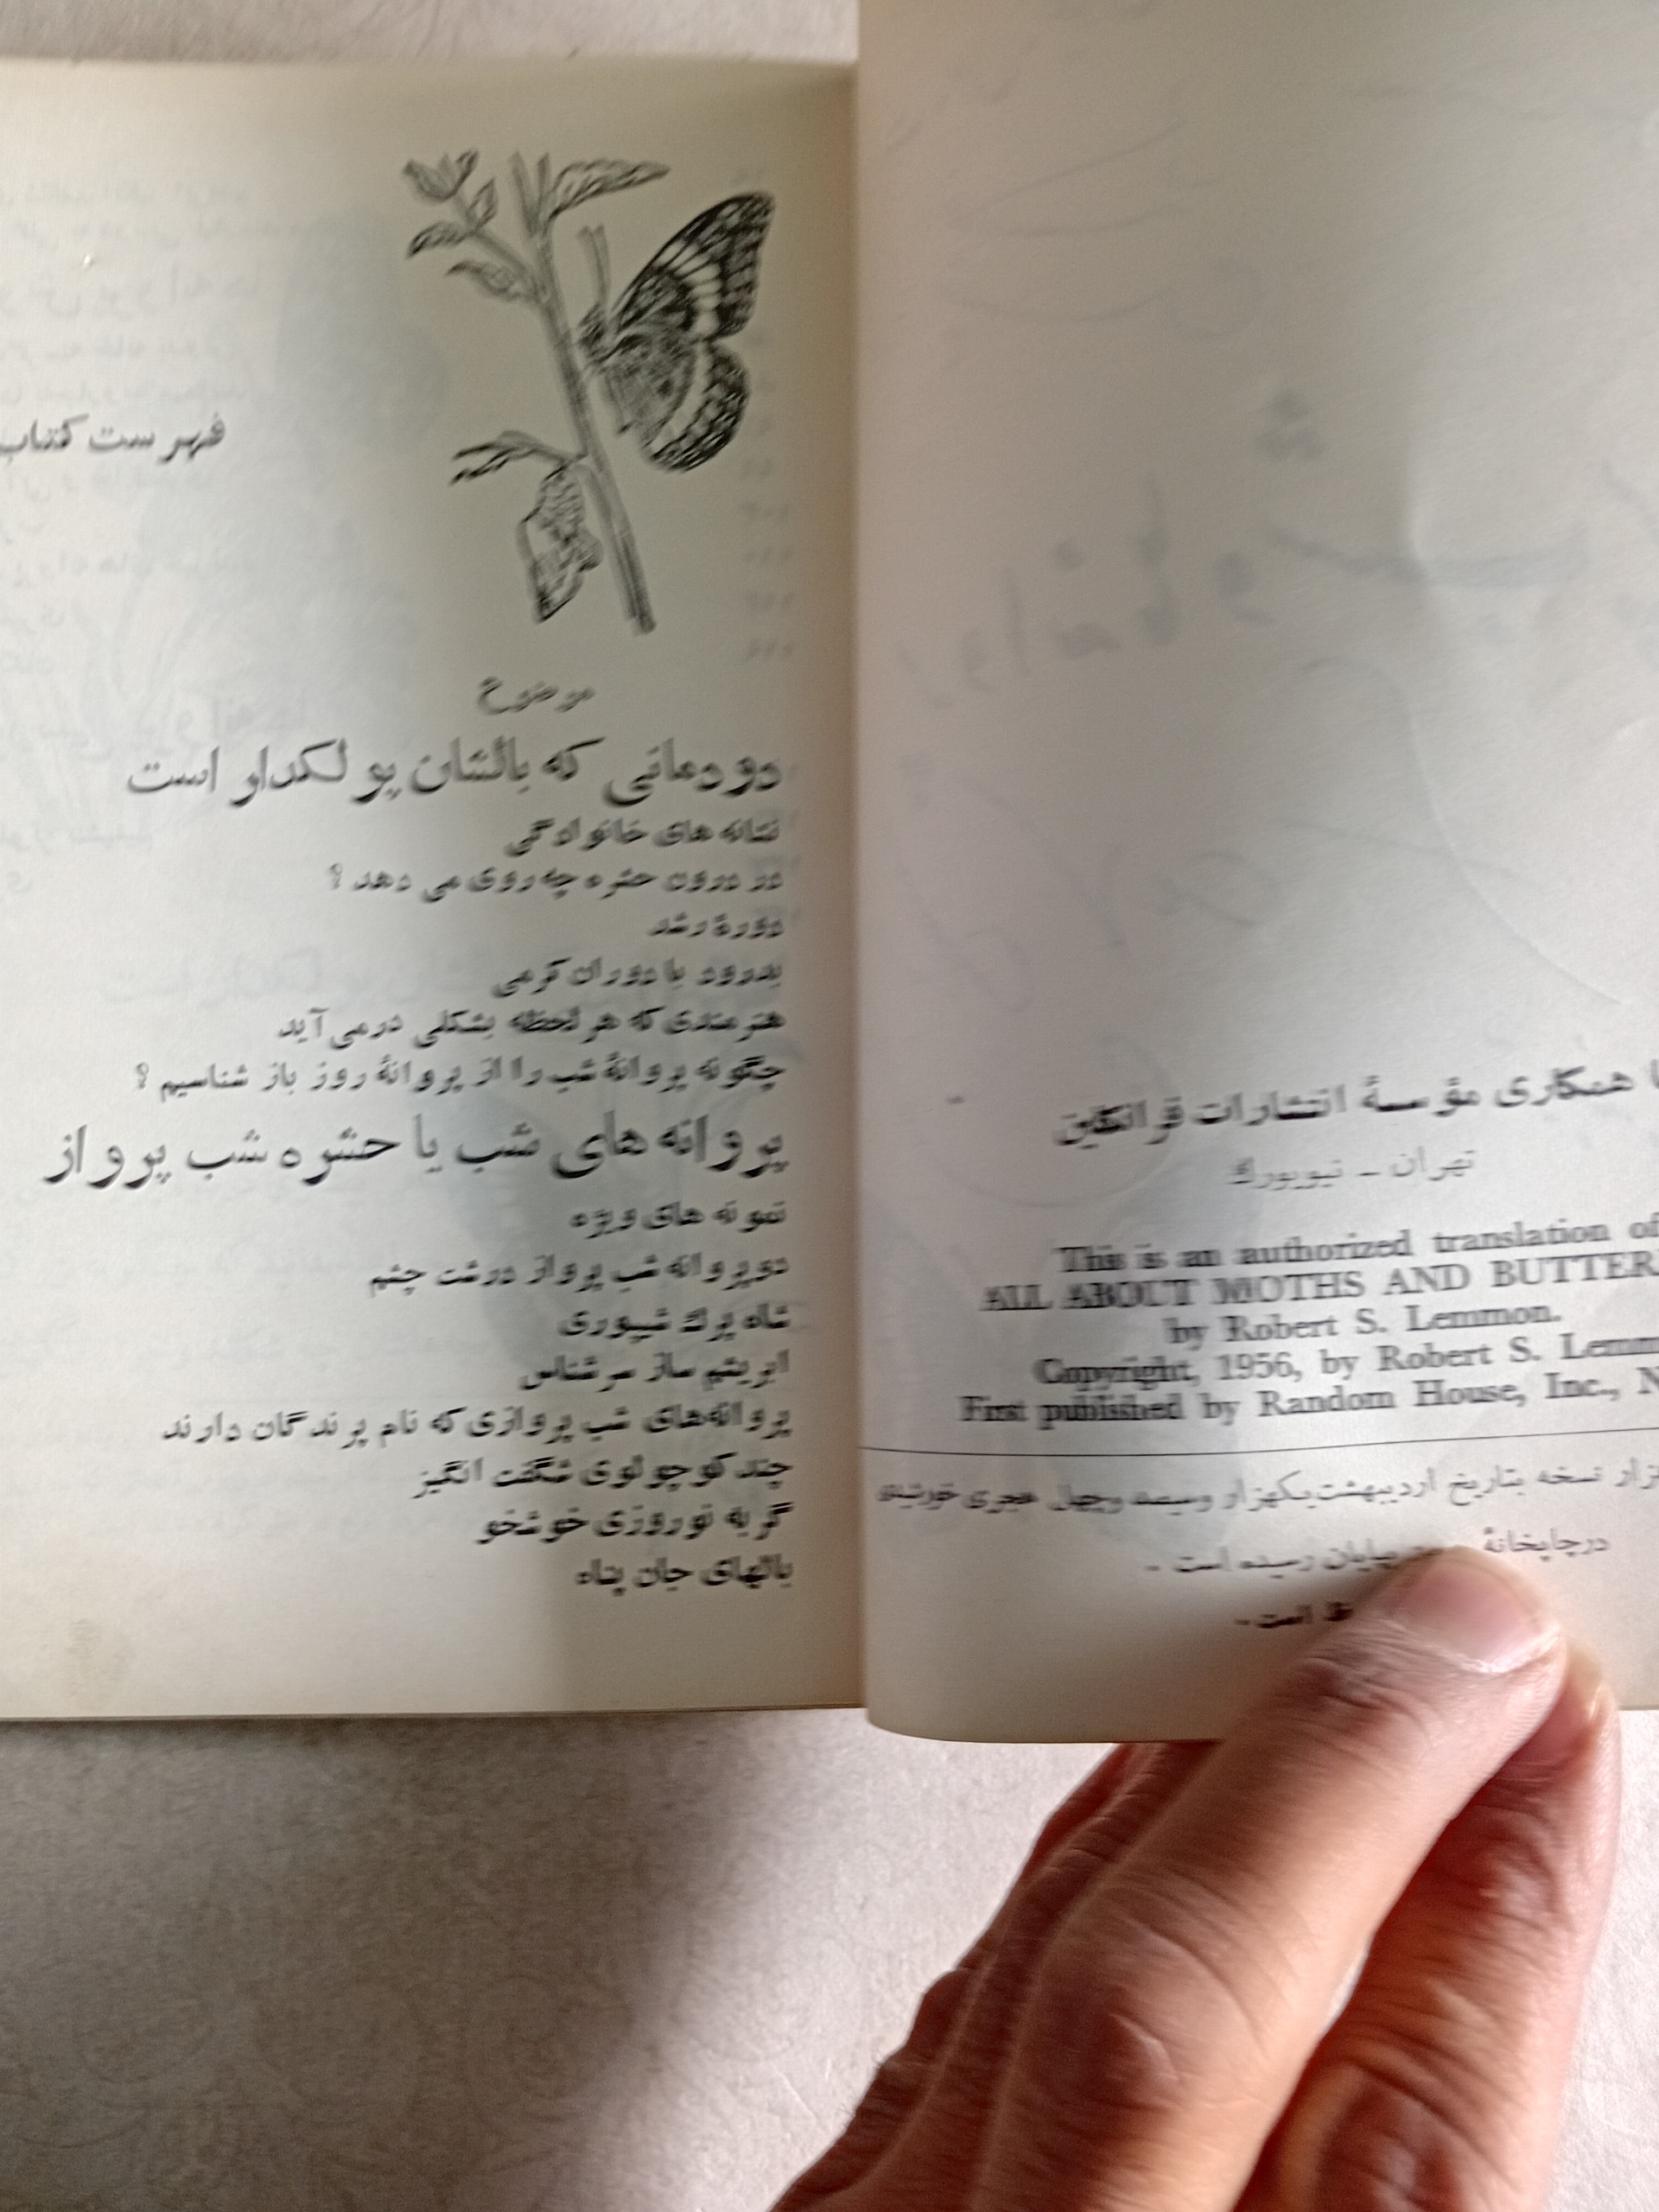 با همکاری مؤسسهٔ انتشارات فرانکلین
تهران ـ نیویورك
This is an authorized translation of
ALL ABOUT MOTHS AND BUTTER
by Robert S. Lemmon.
Copyright, 1956, by Robert S. Lemm
First published by Random House, Inc., N
نسخه بتاریخ اردیبهشت یکهزار وسیصد وچهل هجری خورشیدی
درچاپخانهٔ بپایان رسیده است .
است .
فهرست کتاب
موضوع
دودمانی که بالشان پولکدار است
نشانه های خانوادگی
در درون حشره چه روی می دهد ؟
دورهٔ رشد
بدرود با دوران کرمی
هنرمندی که هر لحظه بشکلی درمی آید
چگونه پروانهٔ شب را از پروانهٔ روز باز شناسیم ؟
پروانه های شب یا حشره شب پرواز
نمونه های ویژه
دوپروانه شب پرواز درشت چشم
شاه پرك شیپوری
ابریشم ساز سرشناس
پروانه‌های شب پروازی که نام پرندگان دارند
چند کوچولوی شگفت انگیز
گربه نوروزی خوشخو
بالهای جان پناه